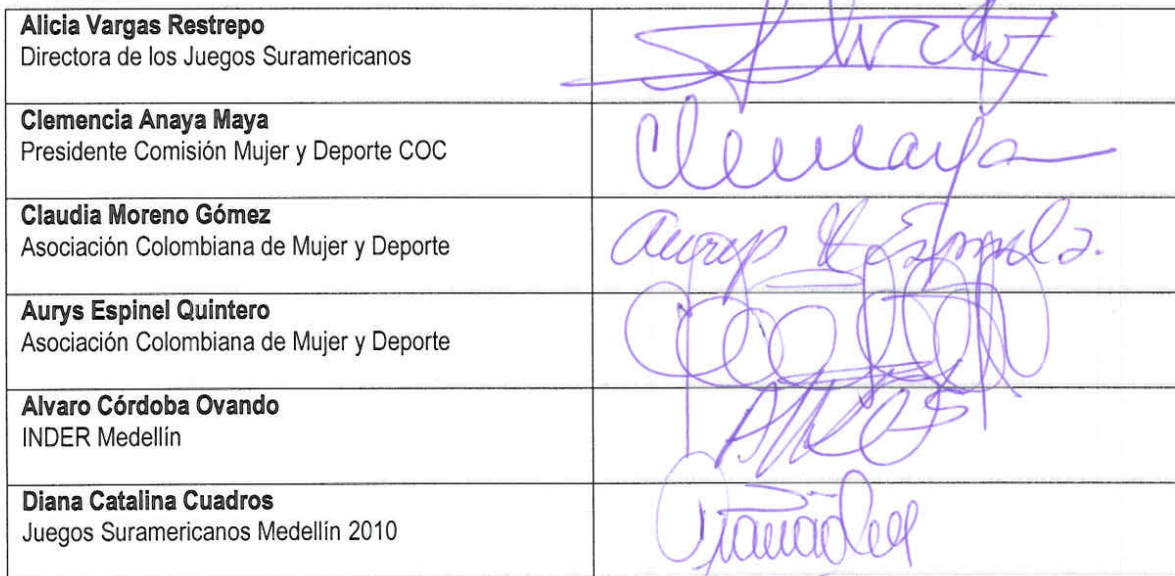 Alicia Vargas Restrepo
Directora de los Juegos Suramericanos
Clemencia Anaya Maya
Presidente Comisión Mujer y Deporte COC
Claudia Moreno Gómez
Asociación Colombiana de Mujer y Deporte
Aurys Espinel Quintero
Asociación Colombiana de Mujer y Deporte
Alvaro Córdoba Ovando
INDER Medellín
Diana Catalina Cuadros
Juegos Suramericanos Medellín 2010